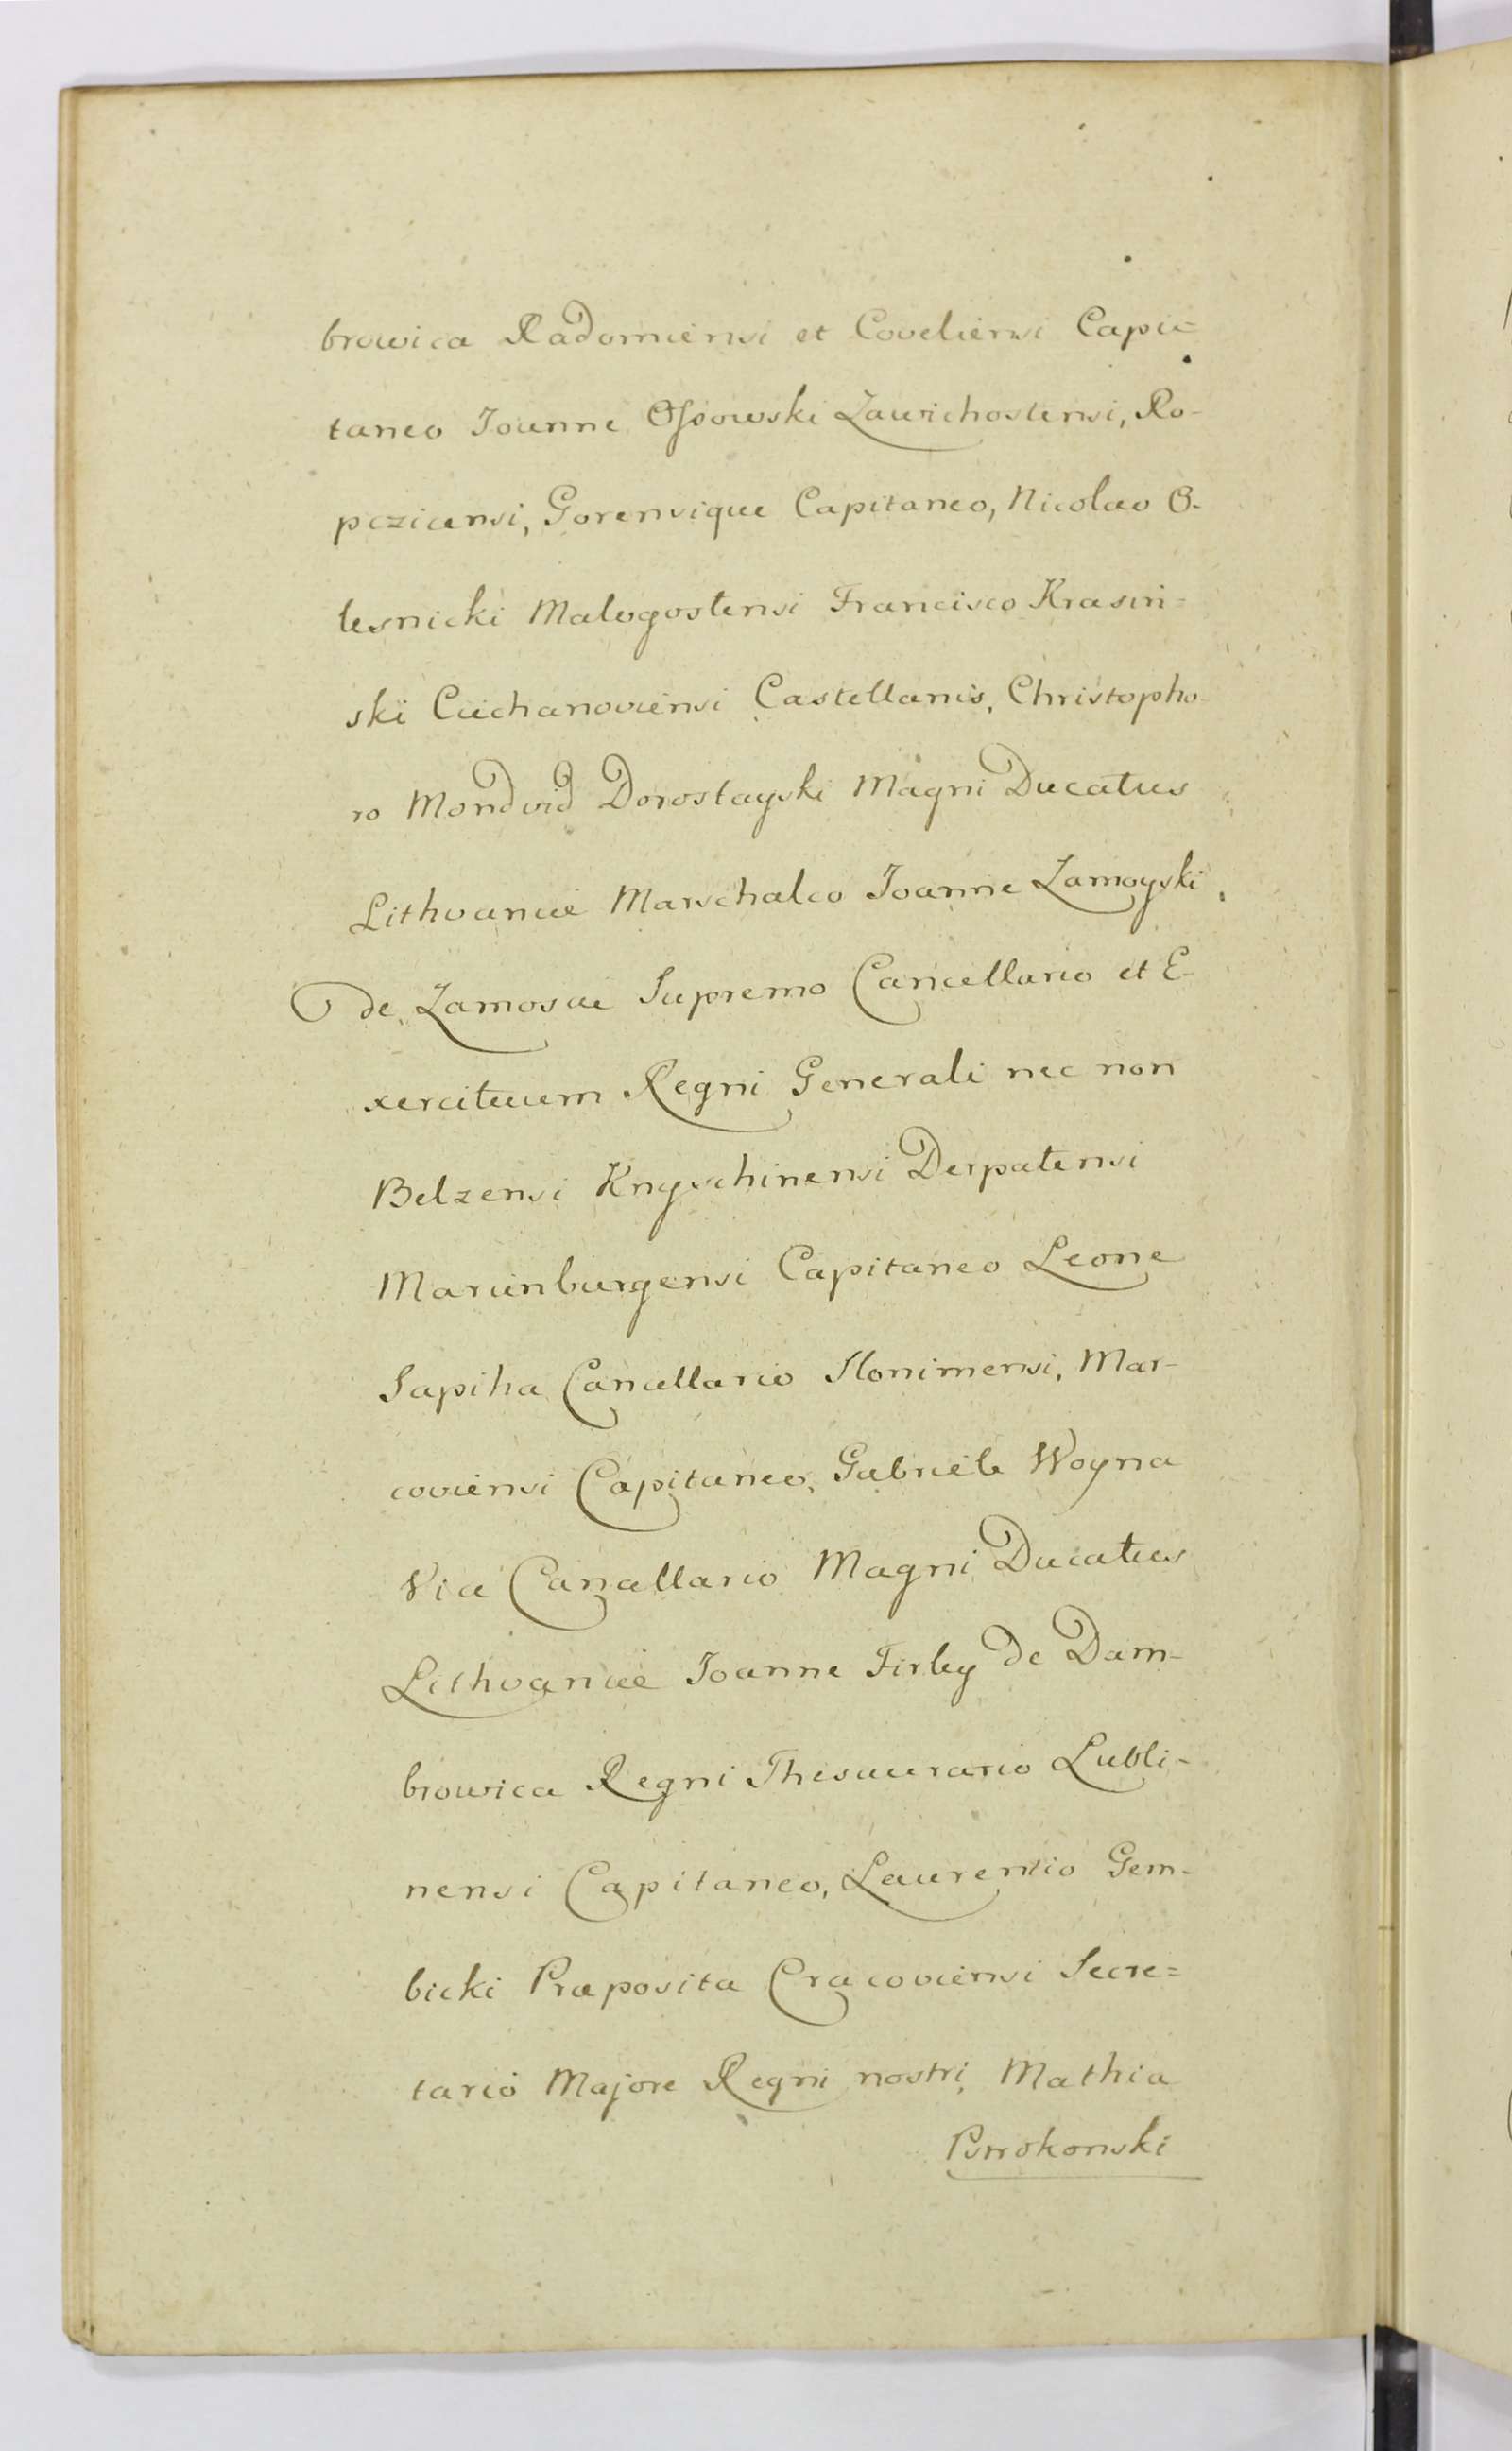 browica Radomiensi et Coveliensi Capi-
taneo Joanne Ossowski Zawichostensi, Ro-
pezicensi, Gorensique Capitaneo, Nicolao O-
lesnicki Malogostensi Francisco Krasin-
ski Ciechanoviensi Castellanis, Christopho-
ro Mondvid Dorostayski Magni Ducatus
Lithvaniae Marschalco Joanne Zamoyski
de Zamoscie Supremo Cancellario et E-
xercituum Regni Generali nec non
Belzensi Knyschinensi Derpatensi
Marienburgensi Capitaneo Leone
Sapiha Cancellario Slonimensi, Mar-
coviensi Capitaneo, Gabriele Woyna
Vice Cancellario Magni Ducatus
Lithvaniae Joanne Firley de Dam-
browica Regni Thesaurario Lubli-
nensi Capitaneo, Laurentio Gem-
bicki Præposita Cracoviensi Secre=
tario Majore Regni nostri, Mathia